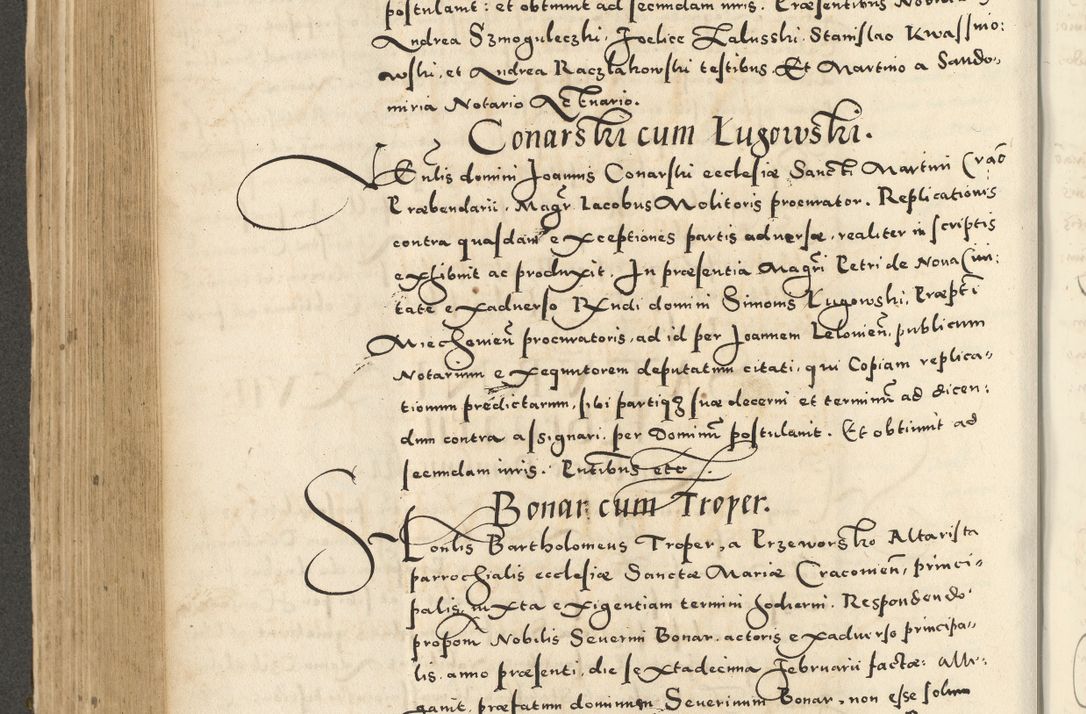 postulauit: et obtinuit ad secundam iuris. Praesentibus
Andrea Szmoguleczki, Foelice Zalusski, Stanislao Kwassnio:
wski, et Andrea Raczlakowski testibus. Et Martino a Sando:
miria Notario Actuario.
Conarski cum Ługowski.
Venlis domini Joannis Conarski ecclesiæ Sancti Martini Crac̃
Præbendarii, Magr̃ Iacobus Molitoris procurator. Replicationis
contra quasdam exceptiones partis aduersæ, realiter in scriptis
exhibuit ac produxit. In præsentia Magr̃i Petri de Noua Ciui:
tate exaduerso Rxndi domini Simonis Ługowski, Præpt̃i
Miechouien̄ procuratoris, ad id per Joannem Lelouien̄, publicum
Notarium exequutorem deputatum citati, qui Copiam replica=
tionum predictarum, sibi partiqȝ suæ decerni et terminū ad dicen:
dum contra assignari per Dominū postulauit. Et obtinuit ad
secundam iuris. Pntibus etc.
Bonar cum Troper.
Honlis Bartholomeus Troper, a Przeworsko Altarista
parrochialis ecclesiæ Sanctæ Mariæ Cracouien̄, princi=
palis, iuxta exigentiam termini hodierni. Respondendo
propoñ Nobilis Seuerini Bonar, actoris exaduerso principa=
lis, anno præsenti, die sextadecima Februarii factæ: alle:
gauit, præfatum dominum Seuerinum Bonar, non esse solum